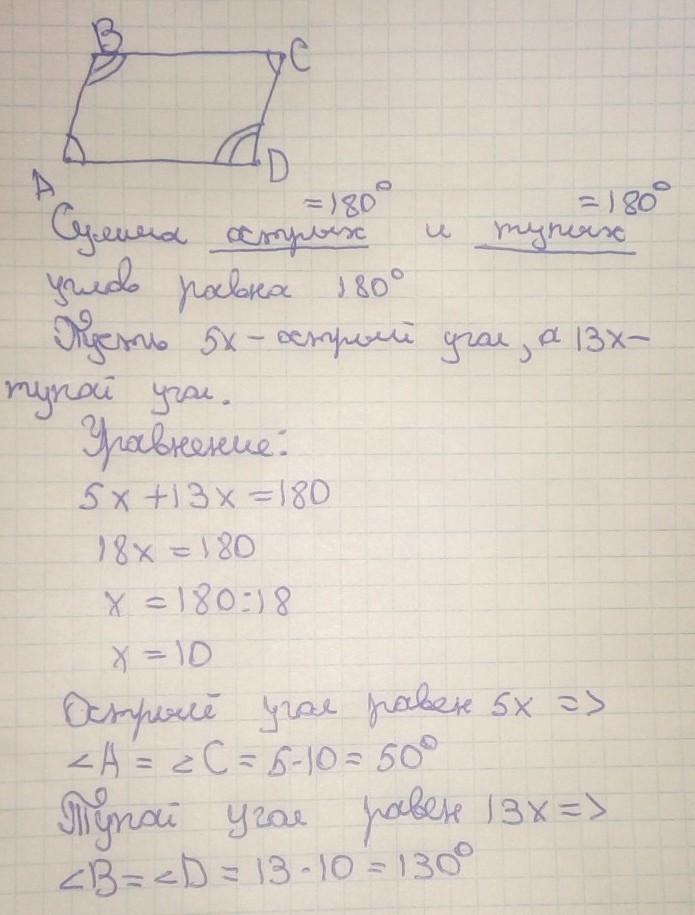 B
C
A
D
=180° =180°
Сумма острых и тупых
углов равна 180°
Пусть 5x - острый угол, а 13x -
тупой угол.
Уравнение:
5x + 13x = 180
18x = 180
x = 180:18
x = 10
Острый угол равен 5x =>
∠A = ∠C = 5·10 = 50°
Тупой угол равен 13x =>
∠B = ∠D = 13·10 = 130°